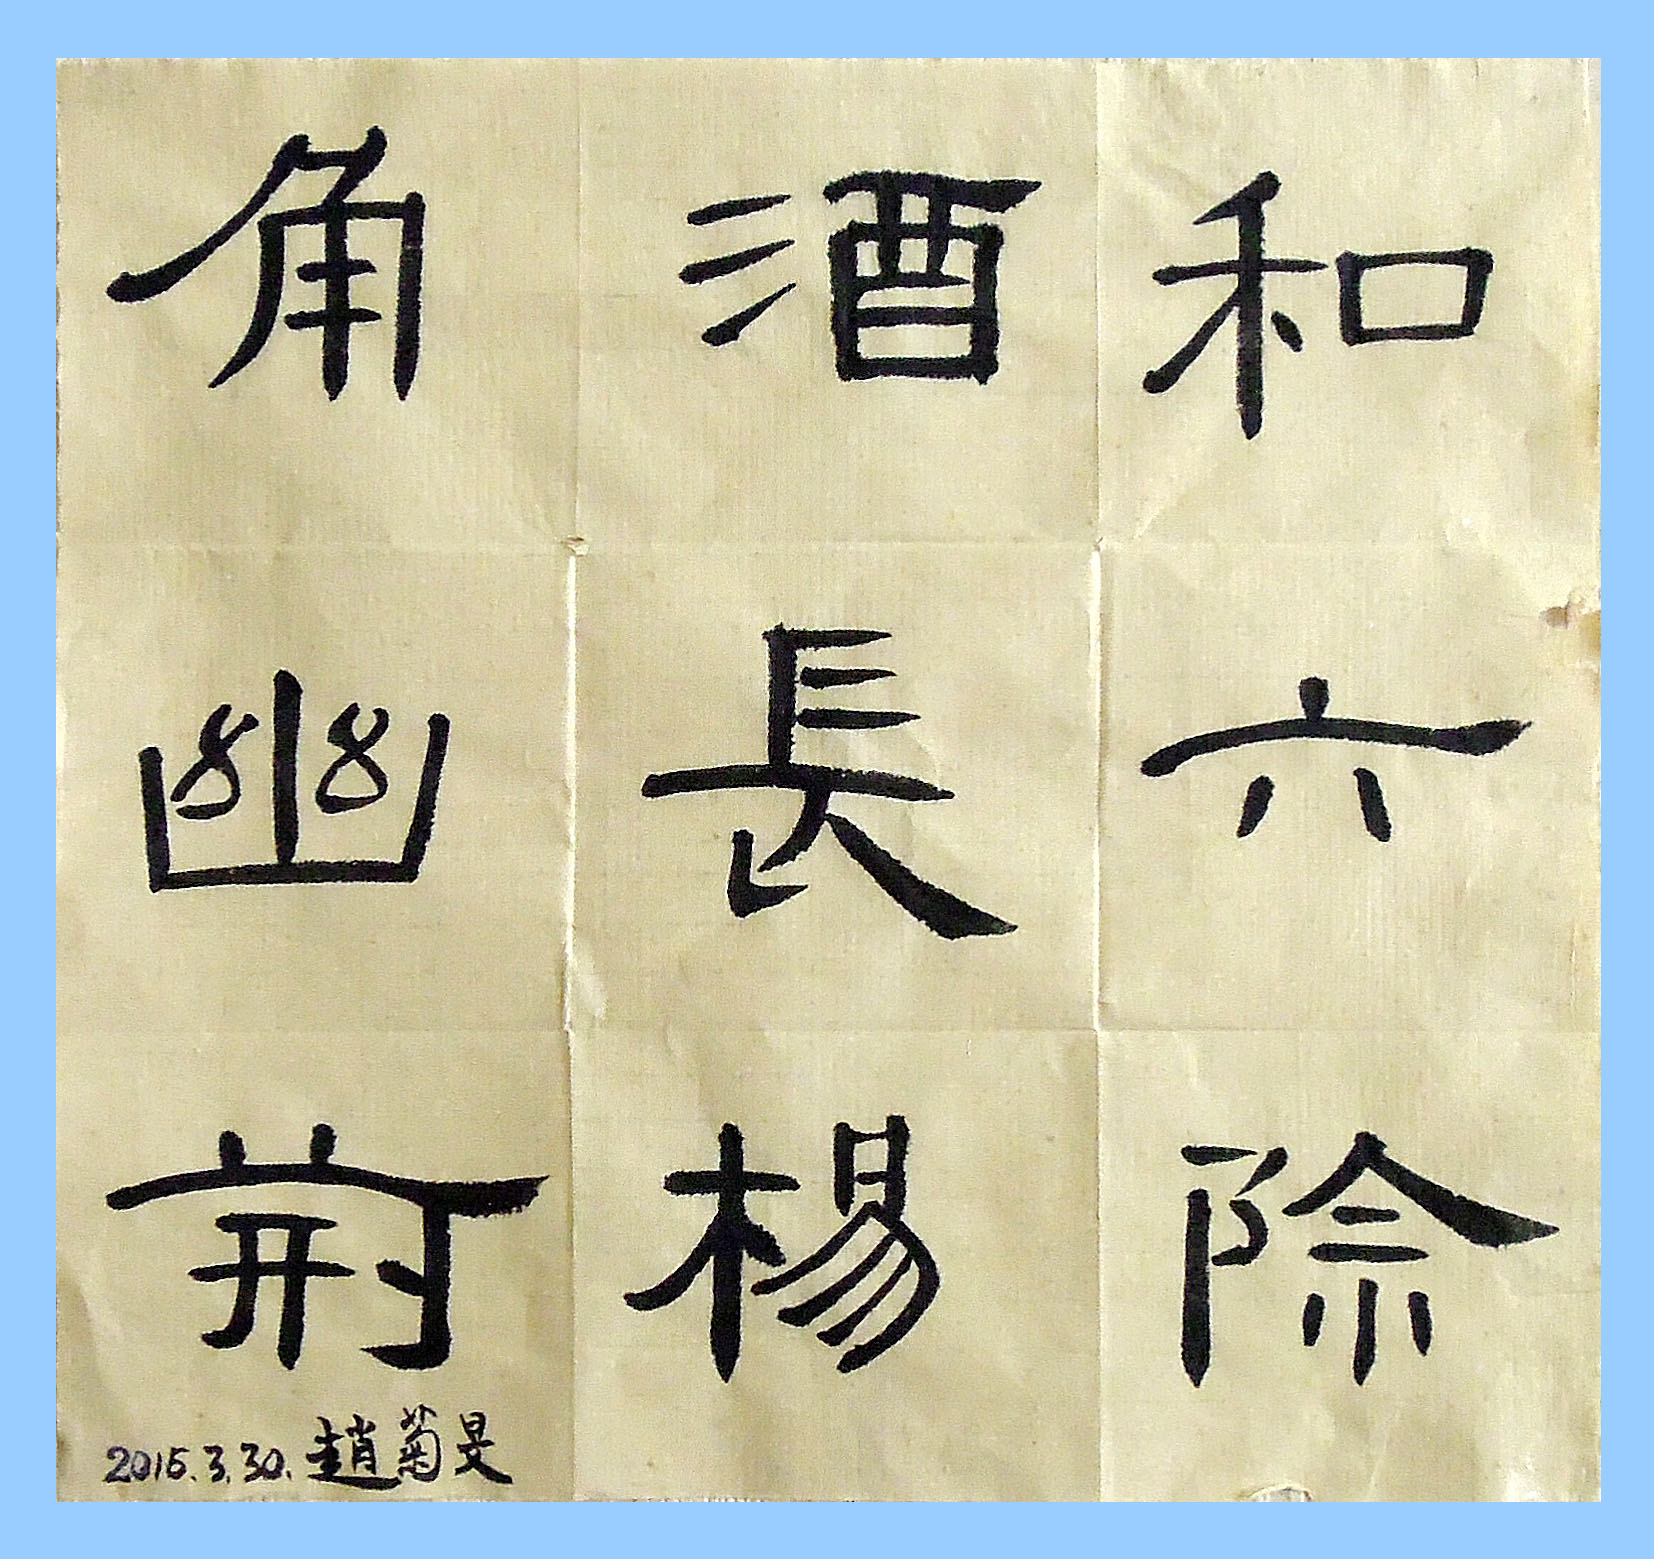 和六除
酒長楊
角幽荊
2015.3.30.趙菊旻